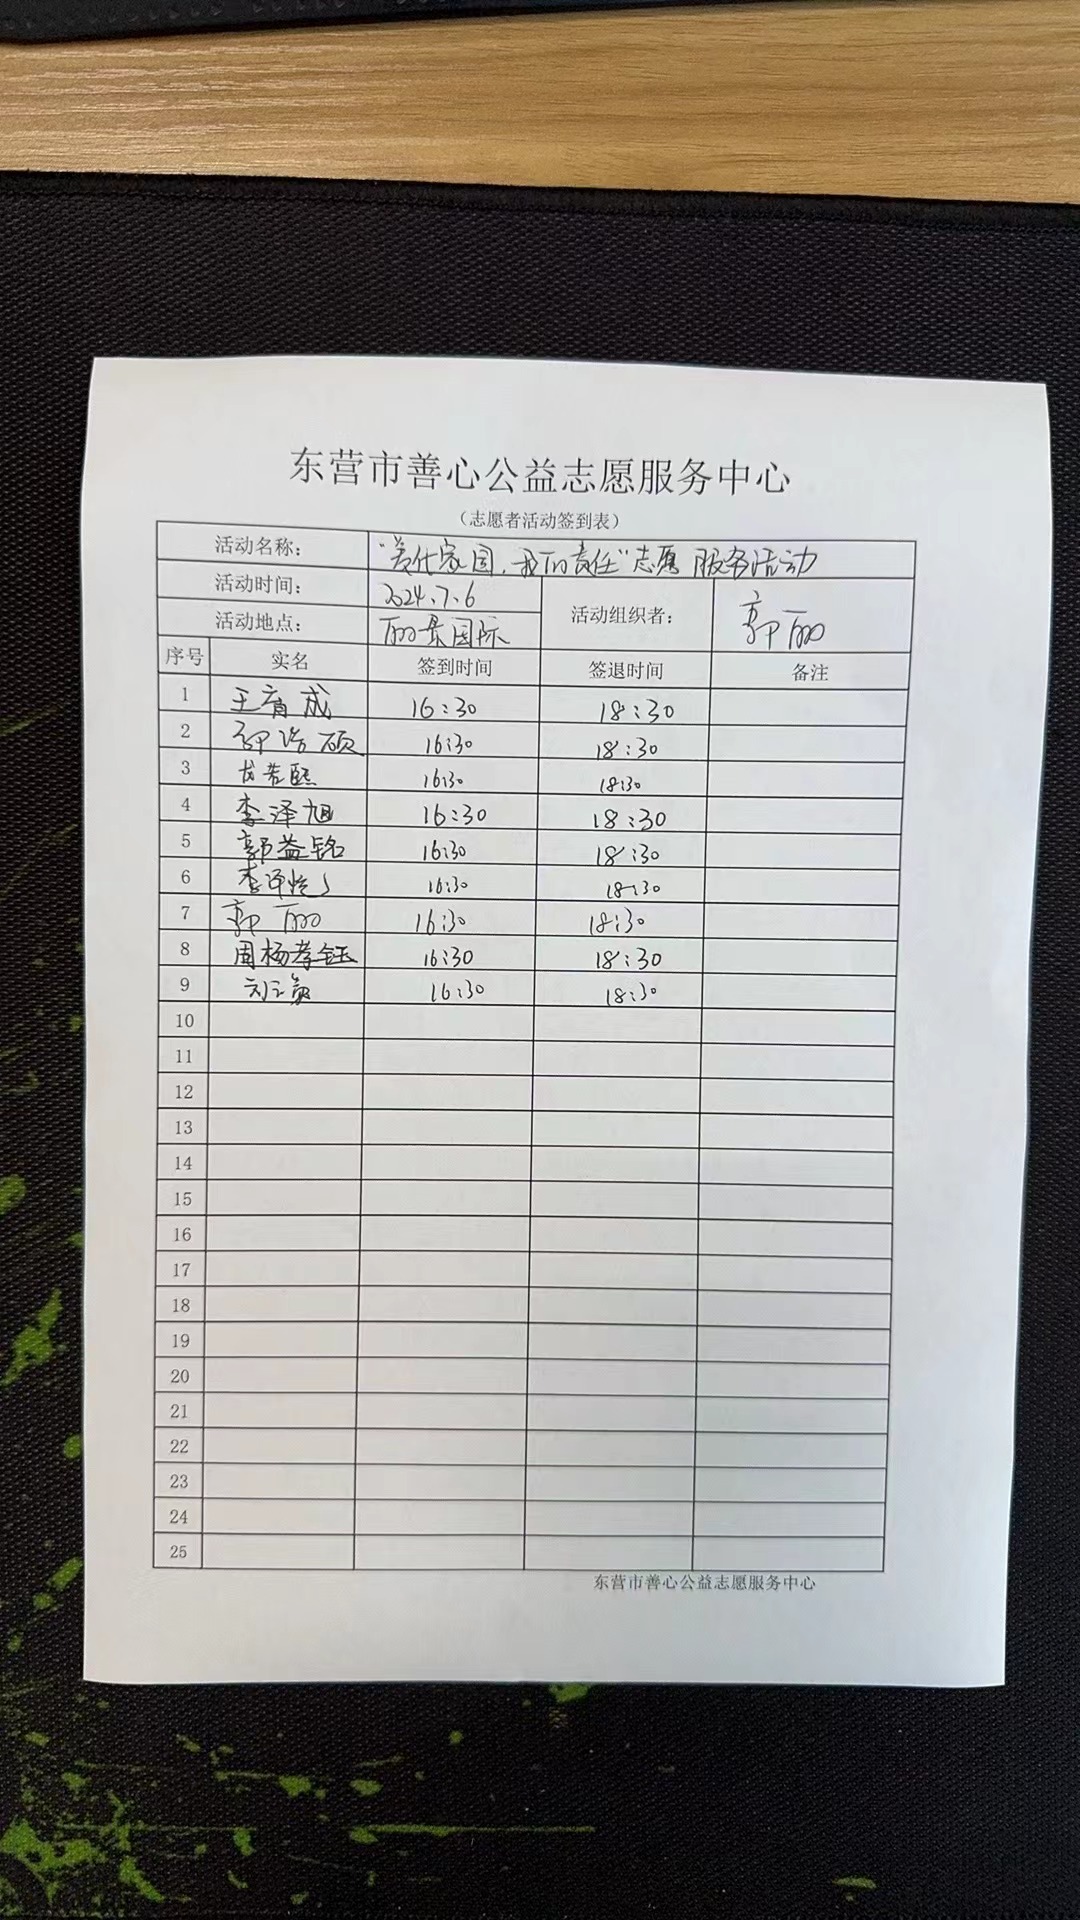 东营市善心公益志愿服务中心
（志愿者活动签到表）
活动名称： "美化家园，我的责任"志愿服务活动
活动时间： 2024.7.6 活动组织者： 郭丽
活动地点： 丽景国际
序号 实名 签到时间 签退时间 备注
1 王育成 16:30 18:30
2 浩硕 16:30 18:30
3 若熙 16:30 18:30
4 李泽旭 16:30 18:30
5 郭益铭 16:30 18:30
6 李泽 16:30 18:30
7 郭丽 16:30 18:30
8 周杨孝钰 16:30 18:30
9 刘 16:30 18:30
10
11
12
13
14
15
16
17
18
19
20
21
22
23
24
25
东营市善心公益志愿服务中心